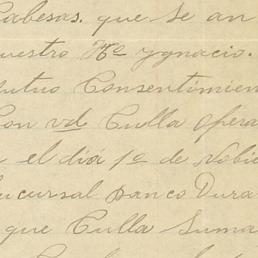 Cabesas. que se an
uestro Hº Ygnacio.
utuo Consentimien
Con vd Culla opera
el día 1º de Nobie
ucursal banco Dura
que Culla Suma